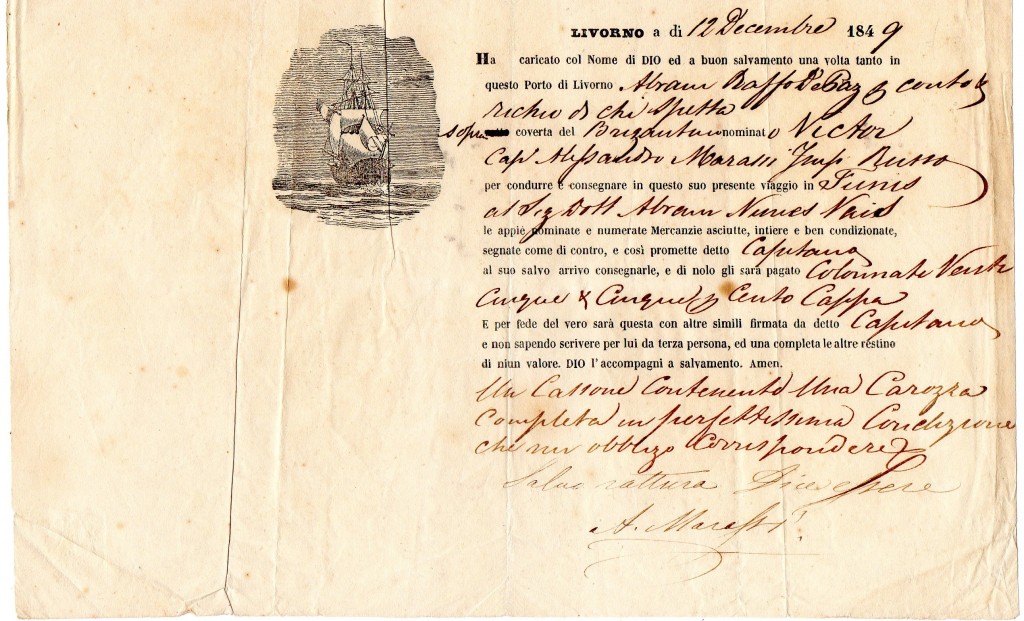 LIVORNO a di 12 Decembre 1849
Ha caricato col Nome di DIO ed a buon salvamento una volta tanto in
questo Porto di Livorno Abram Raffo De Paz p conto e
richio di chi spetta
sopra coverta del Brigantino nominato Victor
Cap Alessandro Marassi Imp Russo
per condurre e consegnare in questo suo presente viaggio in Tunis
al Sig Dott Abram Nunes Vais
le appié nominate e numerate Mercanzìe asciutte, intiere e ben condizionate,
segnate come di contro, e così promette detto Capitano
al suo salvo arrivo consegnarle, e di nolo gli sarà pagato Colonnati Venti
Cinque & Cinque p Cento Cappa
E per fede del vero sarà questa con altre simili firmata da detto Capitano
e non sapendo scrivere per lui da terza persona, ed una completa le altre restino
di niun valore. DIO l'accompagni a salvamento. Amen.
Un Cassone Contenente Una Carozza
Completa in perfettissima Condizione
che mi obbligo Corrispondere
Salvo rattura Dice essere
A. Marassi